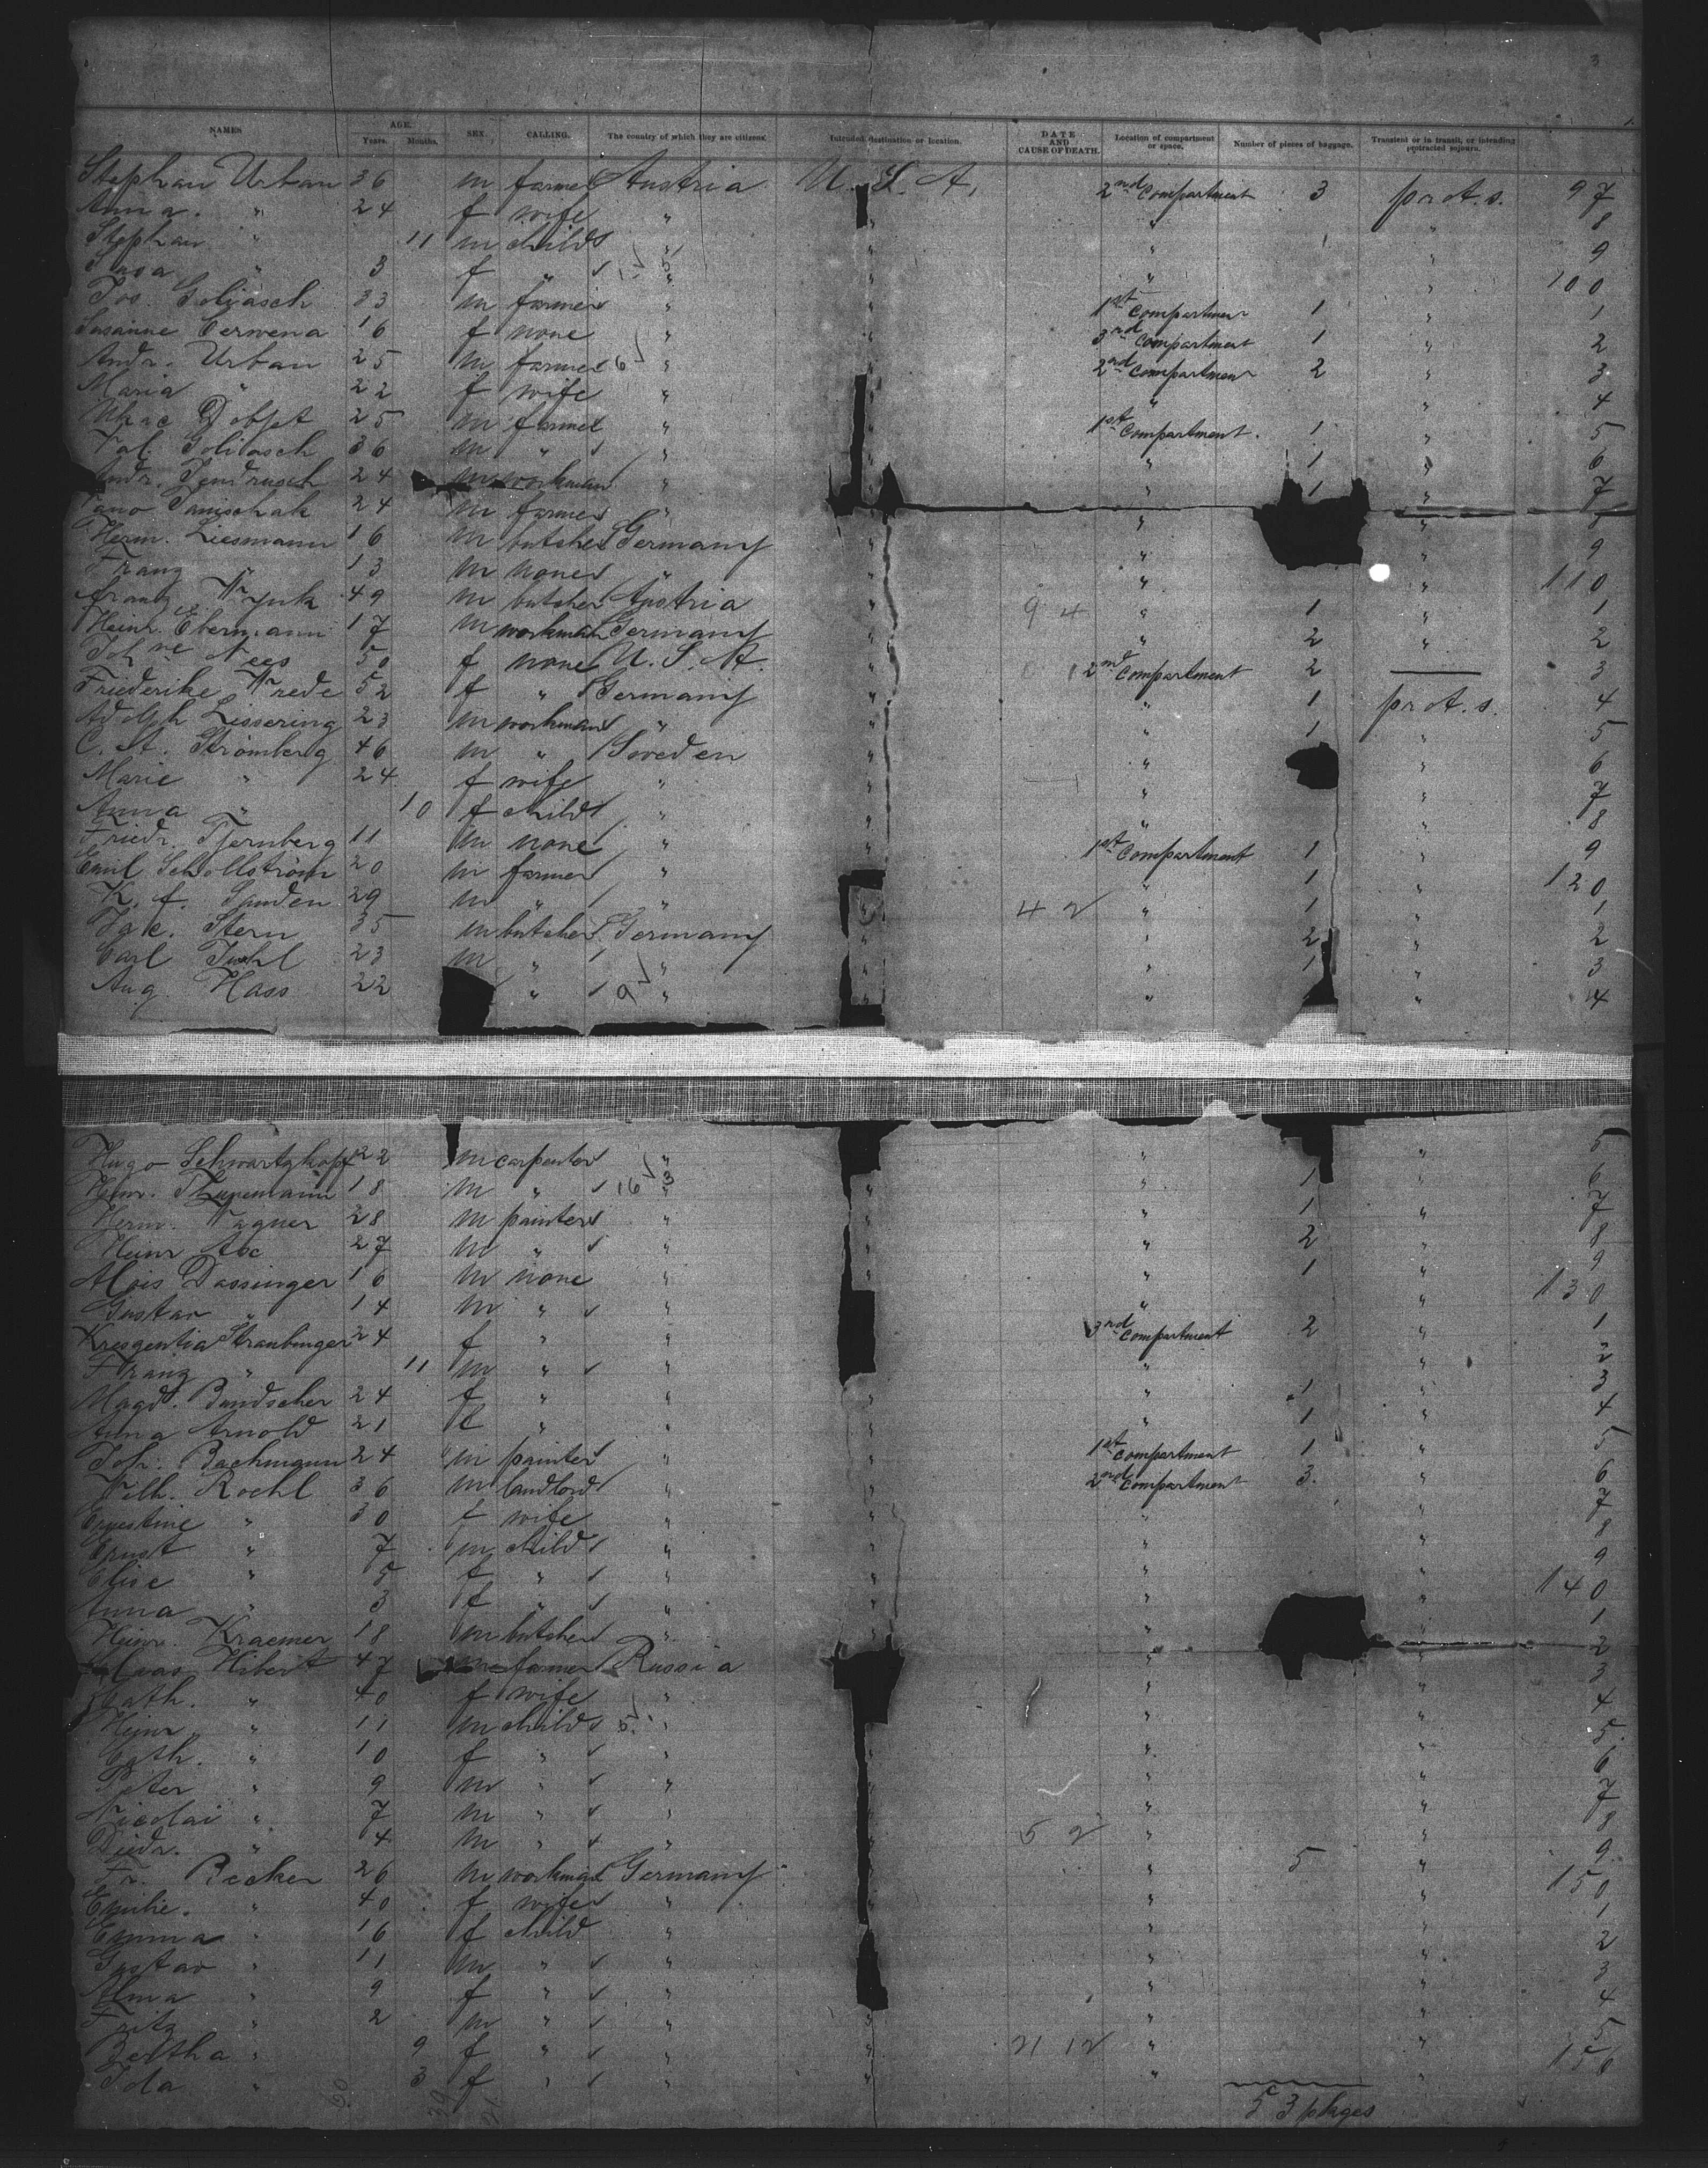 3
NAMES AGE. Years. Months. SEX. CALLING. The country of which they are citizens. Intended destination or location. DATE AND CAUSE OF DEATH. Location of compartment or space. Number of pieces of baggage. Transient or in transit, or intending protracted sojourn.
Stephan Urban 36 m farmer Austria U. S. A. 2nd Compartment 3 prot. s. 97
Anna " 24 f wife " " " " 8
Stephan " 11 m child " " " " 9
" 3 f " " " " " 100
Jos. Goliasch 33 m farmer " " 1st Compartment 1 " 1
Susanne Cerwena 16 f none " " 3rd Compartment 1 " 2
Andr. Urban 25 m farmer 6 " " 2nd Compartment 2 " 3
Maria " 22 f wife " " " " 4
25 m farmer " " 1st Compartment 1 " 5
Val. Goliasch 36 m " " " " 1 " 6
Andr. Jendrusch 24 m workman " " " 1 " 7
Janischak 24 m farmer " " " " 8
Herm. Liesmann 16 m butcher Germany " " " 9
Franz " 13 m none " " " " 110
Franz 49 m butcher Austria " 9 4 " 1 " 1
Heinr. Ebermann 17 m workman Germany " " 2 " 2
Johne Nees 50 f none U. S. A. 2nd Compartment 2 — 3
Friederike Wrede 52 f " Germany " " 1 prot. s. 4
Adolph Lissering 23 m workman " " " 1 " 5
C. A. Strömberg 46 m " Sweden " " " 6
Marie " 24 f wife " " " " 7
Anna " 10 f child " " " " 8
Friedr. Tjernberg 11 m none " " 1st Compartment 1 " 9
Emil Schollström 20 m farmer " " " 1 " 120
K. f. Sunden 29 m " " " 4 2 " 1 " 1
Stern 35 m butcher Germany " " 2 " 2
Carl Juhl 23 m " " " " 1 " 3
Aug. Hass 22 " 9 " " " " 4
Hugo Schwartzkopf 22 m carpenter " " " 5
18 m " 16 3 " " " 1 " 6
Herm. Wagner 28 m painter " " 1 " 7
Heinr. Abe 27 m " " " " 2 " 8
Alois Dassinger 16 m none " " " 1 " 9
Gustav " 14 m " " " " 130
Kresgentia Straubinger 24 f " " 3rd Compartment 2 " 1
Franz " 11 m " " " " 2
Magd. Bundscher 24 f " " " " 1 " 3
Anna Arnold 21 f " " " " 1 " 4
Joh. Bachmann 24 m painter " " 1st Compartment 1 " 5
Wilh. Roehl 36 m landlord " " 2nd Compartment 3 " 6
Ernestine " 30 f wife " " " " 7
Ernst " 7 m child " " " " 8
Elise " 5 f " " " " " 9
Anna " 3 f " " " " 140
Heinr. Kraemer 18 m butcher " " " 1
Hibert 47 m farmer Russia " " 2
Cath. " 40 f wife " " " 3
Heinr. " 11 m child 5 " " " 4
Cath. " 10 f " " " " " 5
Peter " 9 m " " " " " 6
Nicolai " 7 m " " " " " 7
Diedr. " 4 m " " " 5 2 " " 8
Fr. Becker 26 m workman Germany " " 5 " 9
Emilie " 40 f wife " " " 150
Emma " 16 f child " " " 1
Gustav " 11 m " " " " 2
Alma " 9 f " " " " 3
Fritz " 2 m " " " " " 4
Bertha " 9 f " " " 21 12 " " 5
Ida " 3 f " " " " " 156
53 plages